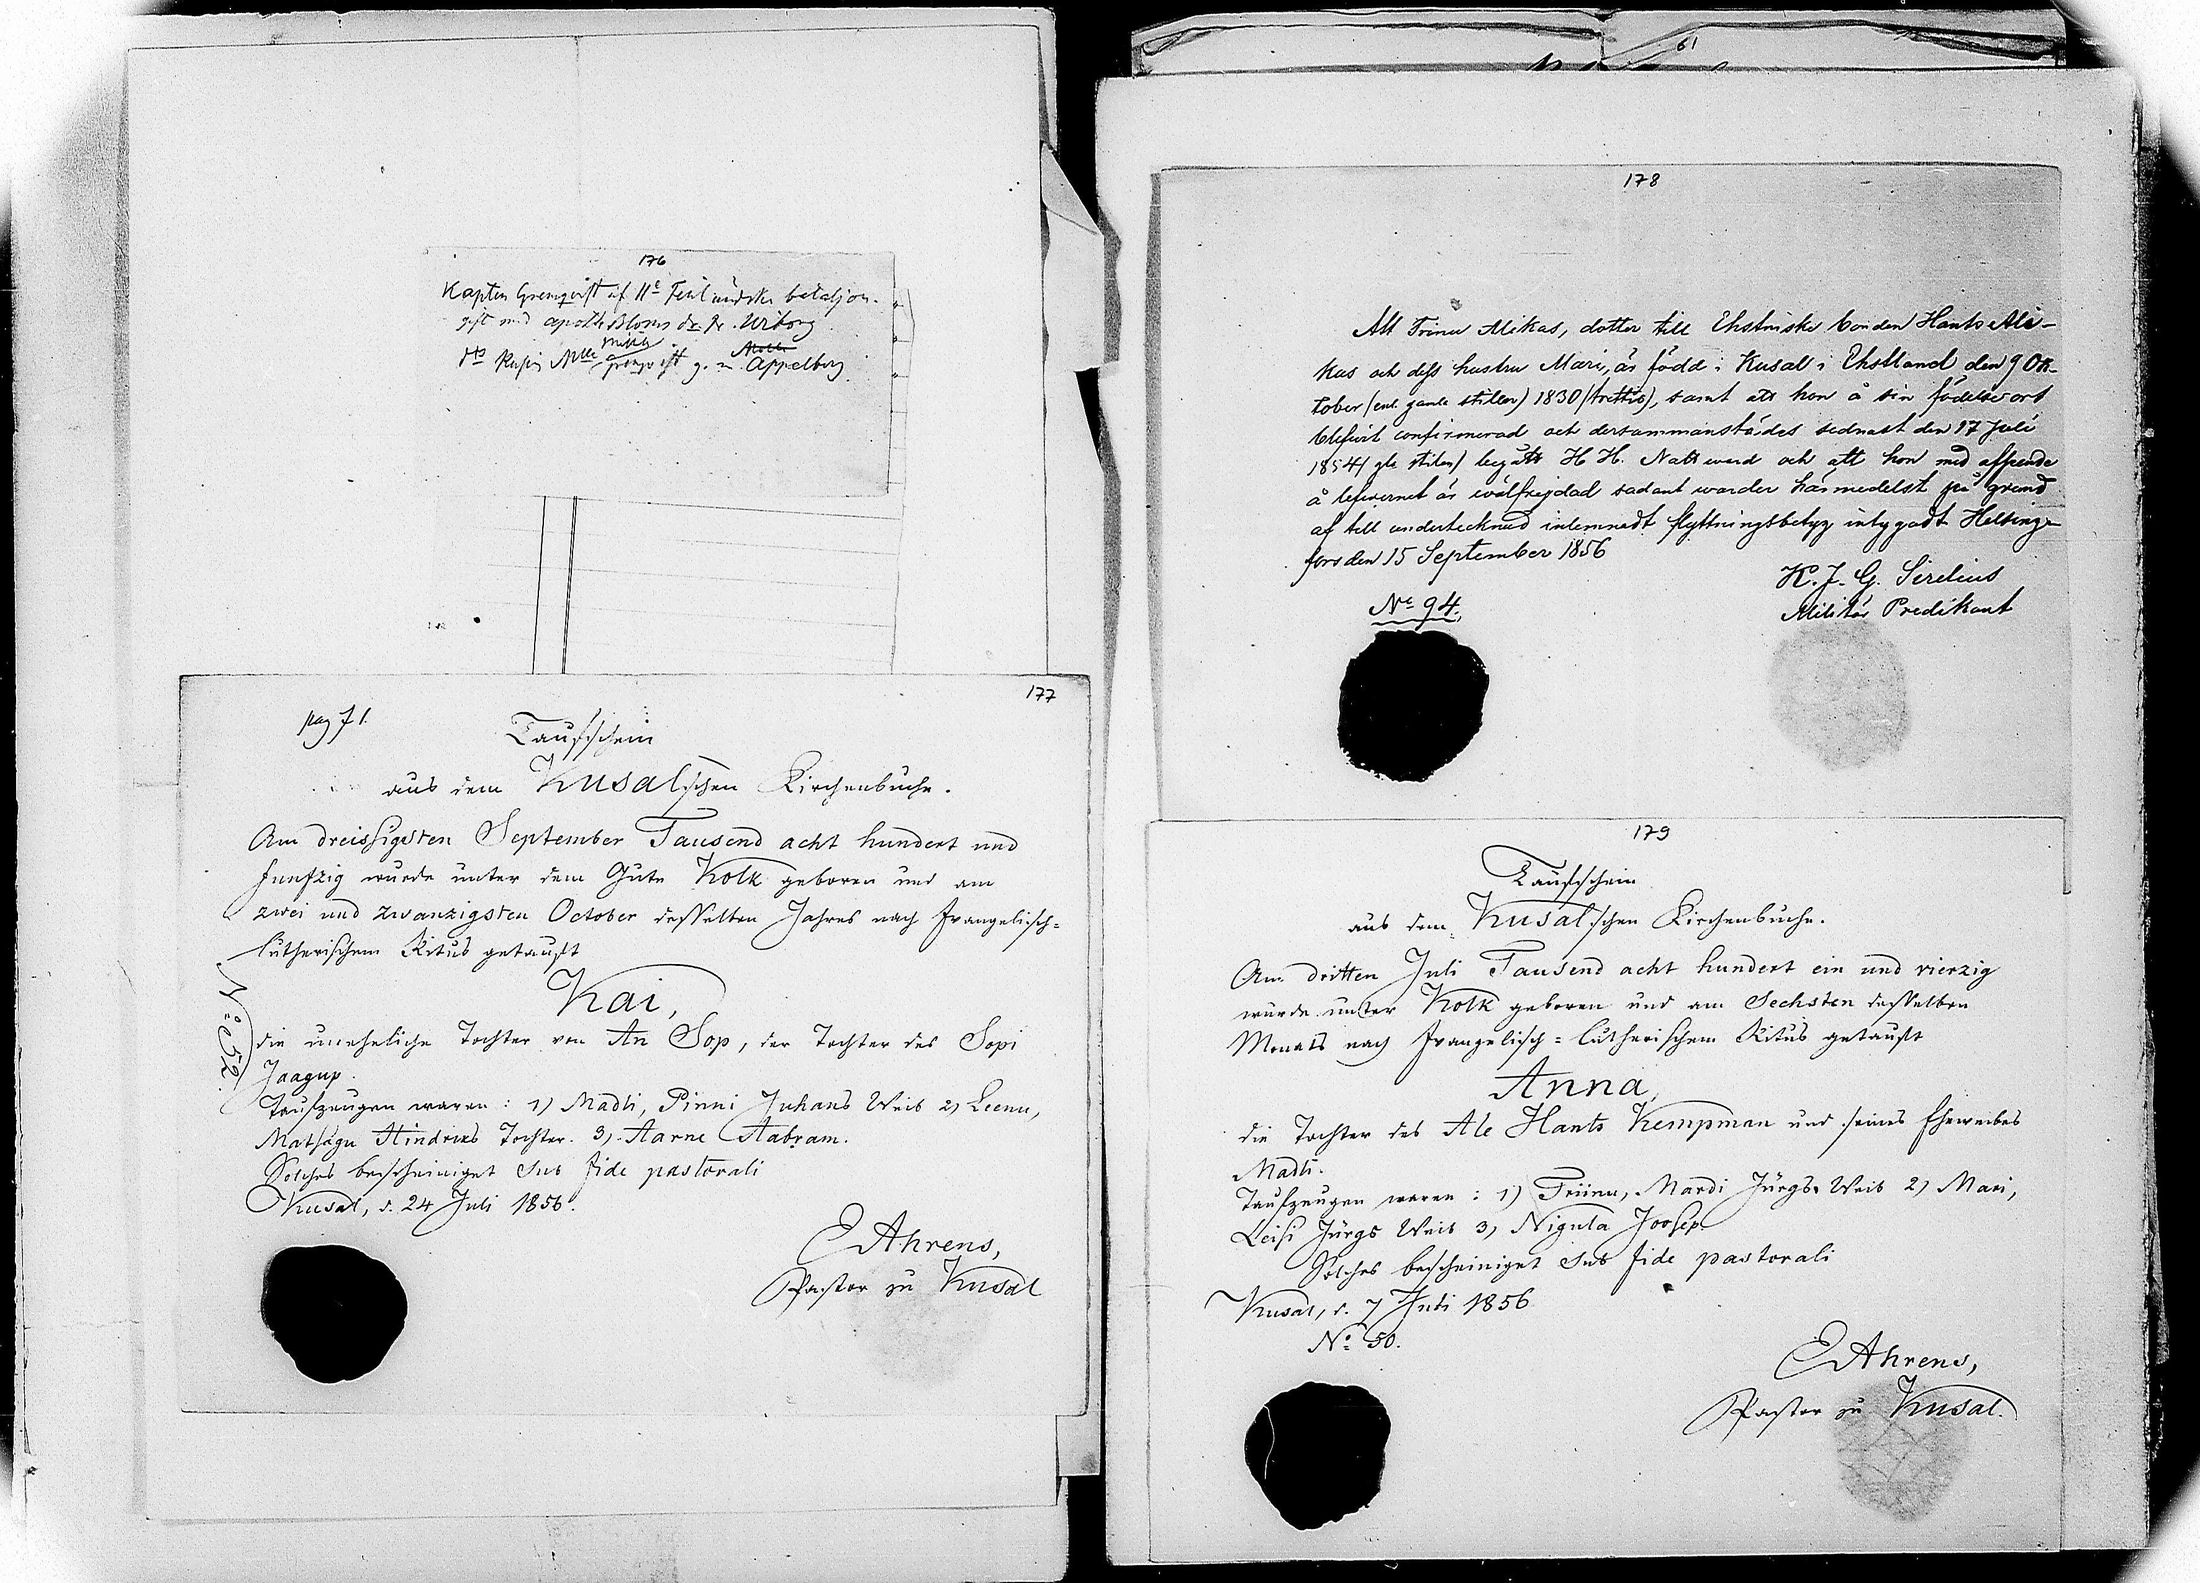 176
Kapten Grenqvist af 11e Finländska bataljon.
gift med apoth. Bloms dr. fr. Wiborg
dto Rufin Mlle Grenqvist g. m. Appelberg
177
pag 71.
Taufschein
aus dem Kusalschen Kirchenbuche.
Am dreissigsten September Tausend acht hundert und
funfzig wurde unter dem Gute Kolk geboren und am
zwei und zwanzigsten October desselben Jahres nach Evangelisch=
lutherischem Ritus getauft
Kai,
die uneheliche Tochter von An Sop, der Tochter des Sopi
Jaagup.
Taufzeugen waren: 1) Madli, Pinni Juhans Weib 2) Leenu,
Matsagu Hindriks Tochter. 3) Aarne Aabram.
Solches bescheiniget sub fide pastorali
Kusal, d. 24 Juli 1856.
No 52.
EAhrens,
Pastor zu Kusal
61
178
Att Trinu Alikas, dotter till Ehstniske bonden Hants Ali-
kas och dess hustru Mari, är född i Kusal i Ehstland den 9 Ok-
tober (enl. gamla stilen) 1830 (trettio), samt att hon å sin födelseort
blifvit confirmerad och dersammanstädes sednast den 17 Juli
1854 (gla stilen) begått H. H. Nattvard och att hon med afseende
å lefvernet är wälfrejdad sådant warder härmedelst på grund
af till undertecknad inlemnadt flyttningsbetyg intygadt Helsing-
fors den 15 September 1856
K. J. G. Sirelius
Militär Predikant
No 94.
179
Taufschein
aus dem Kusalschen Kirchenbuche.
Am dritten Juli Tausend acht hundert ein und vierzig
wurde unter Kolk geboren und am Sechsten desselben
Monats nach Evangelisch=lutherischem Ritus getauft
Anna,
die Tochter des Ale Hants Kempman und seines Eheweibes
Madli.
Taufzeugen waren: 1) Triinu, Mardi Jürgs Weib 2) Mari,
Leisi Jürgs Weib 3) Nigula Joosep.
Solches bescheiniget sub fide pastorali
Kusal, d. 7 Juli 1856
No 50.
EAhrens,
Pastor zu Kusal.